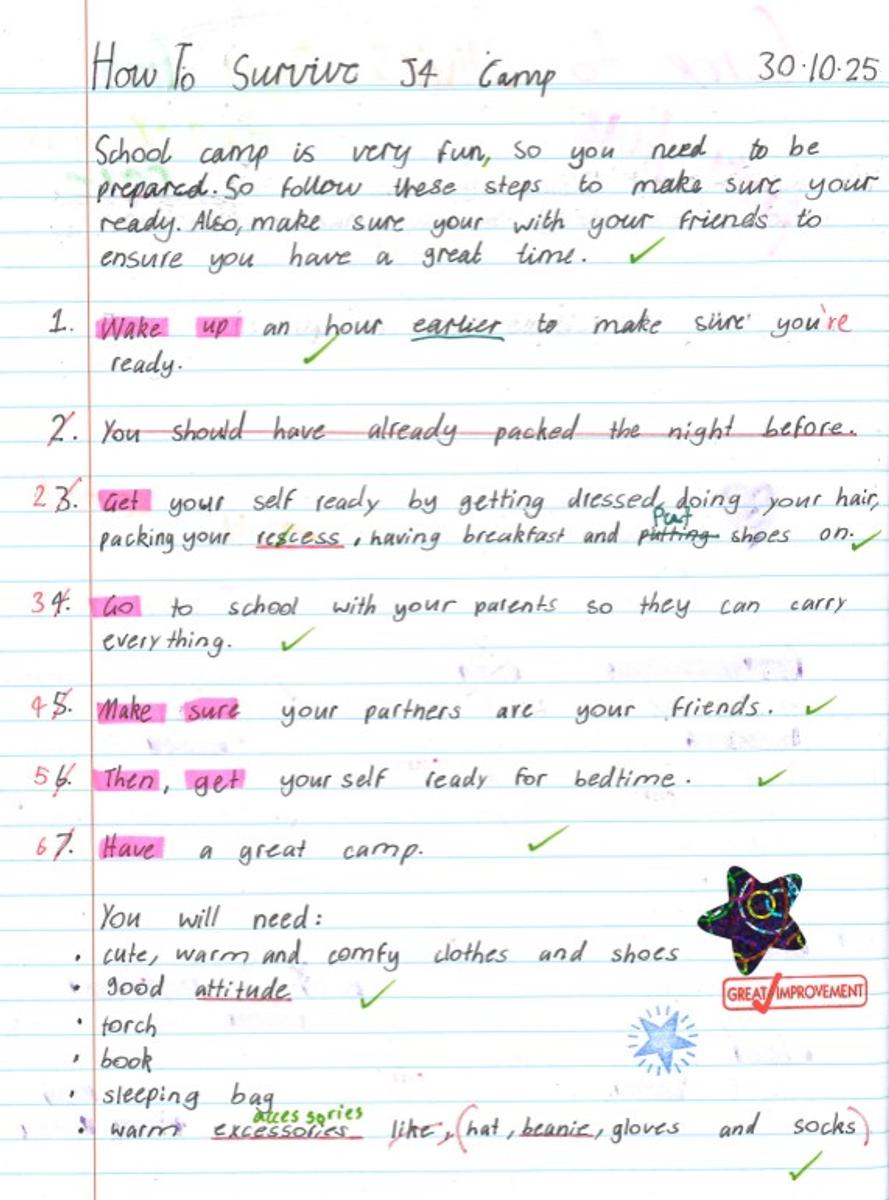 How To Survive J4 Camp 30.10.25
School camp is very fun, so you need to be
prepared. So follow these steps to make sure your
ready. Also, make sure your with your friends to
ensure you have a great time.
1. Wake up an hour earlier to make sure you're
ready.
2. You should have already packed the night before.
2 3. Get your self ready by getting dressed, doing your hair,
Put
packing your rescess, having breakfast and putting shoes on.
3 4. Go to school with your parents so they can carry
every thing.
4 5. Make sure your partners are your friends.
5 6. Then, get your self ready for bedtime.
6 7. Have a great camp.
You will need:
• cute, warm and comfy clothes and shoes
• good attitude
GREAT IMPROVEMENT
• torch
• book
• sleeping bag
accessories
• warm excessories like, (hat, beanie, gloves and socks)